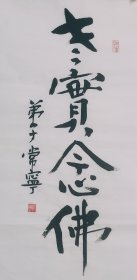 老實念佛
弟子常寧